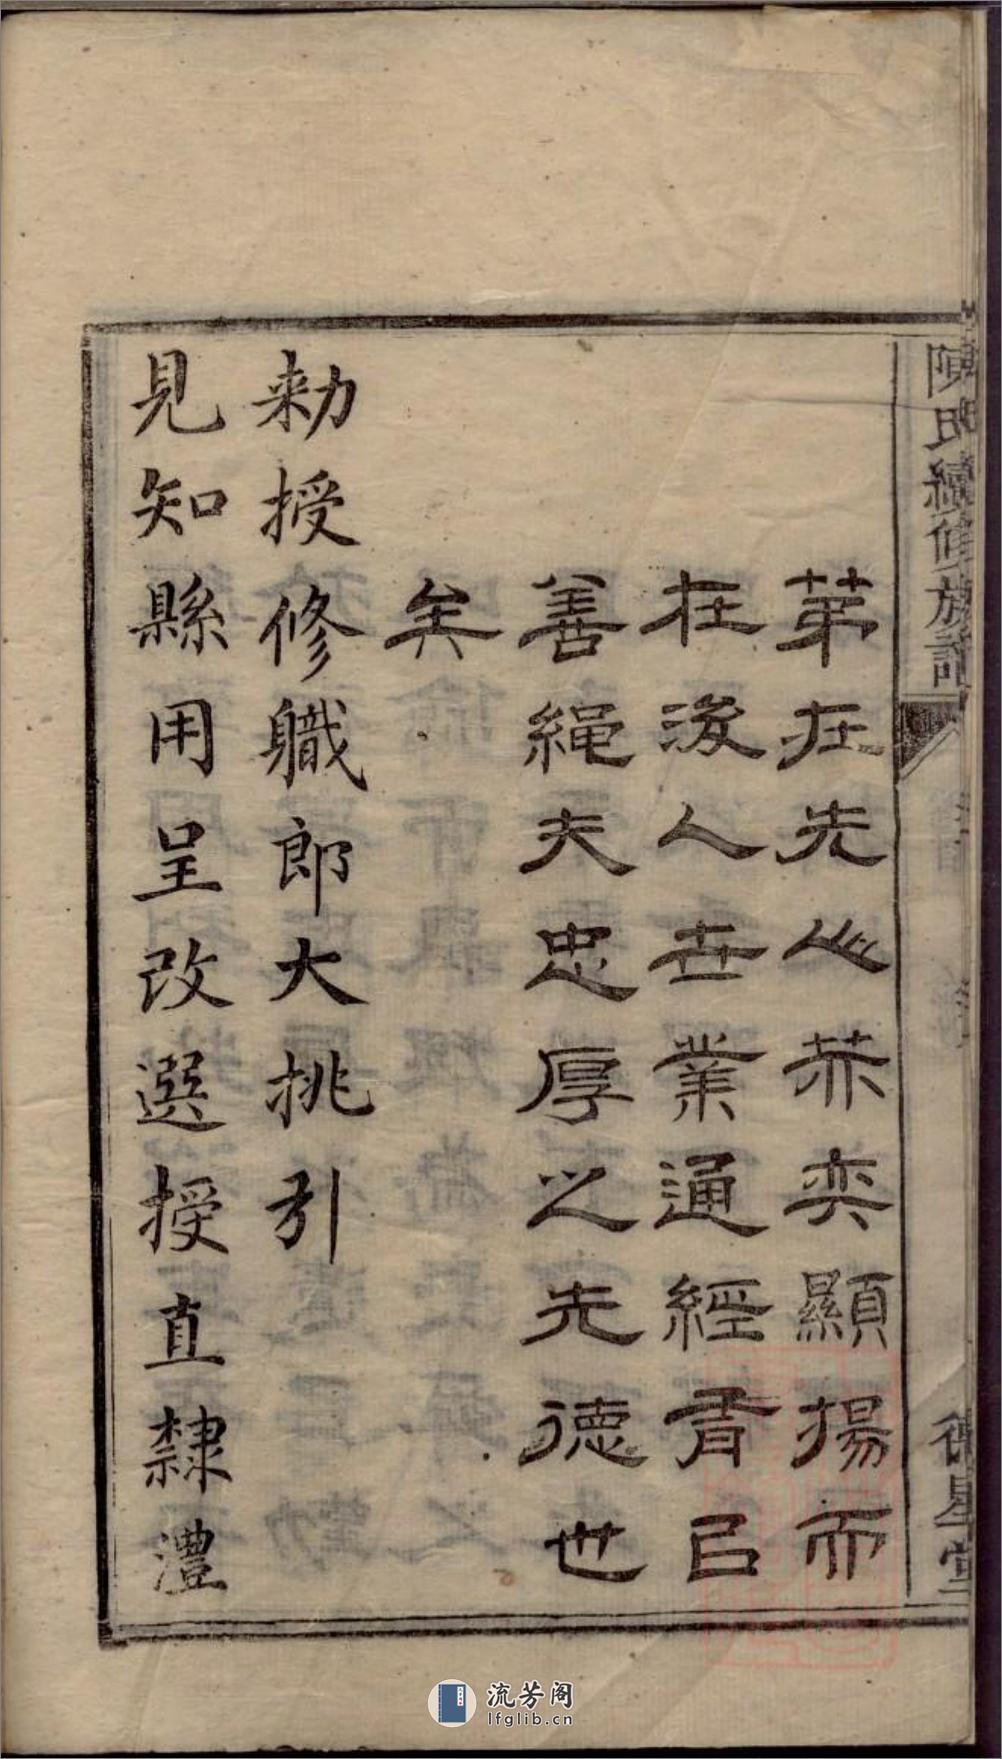 陳氏續修族譜
德星堂
苐在先心奕顯揚而
在後人世業通經胥㠯
善繩夫忠厚之先德也
矣
勑授修職郎大挑引
見知縣用呈改選授直隸澧
流芳阁
lfglib.cn